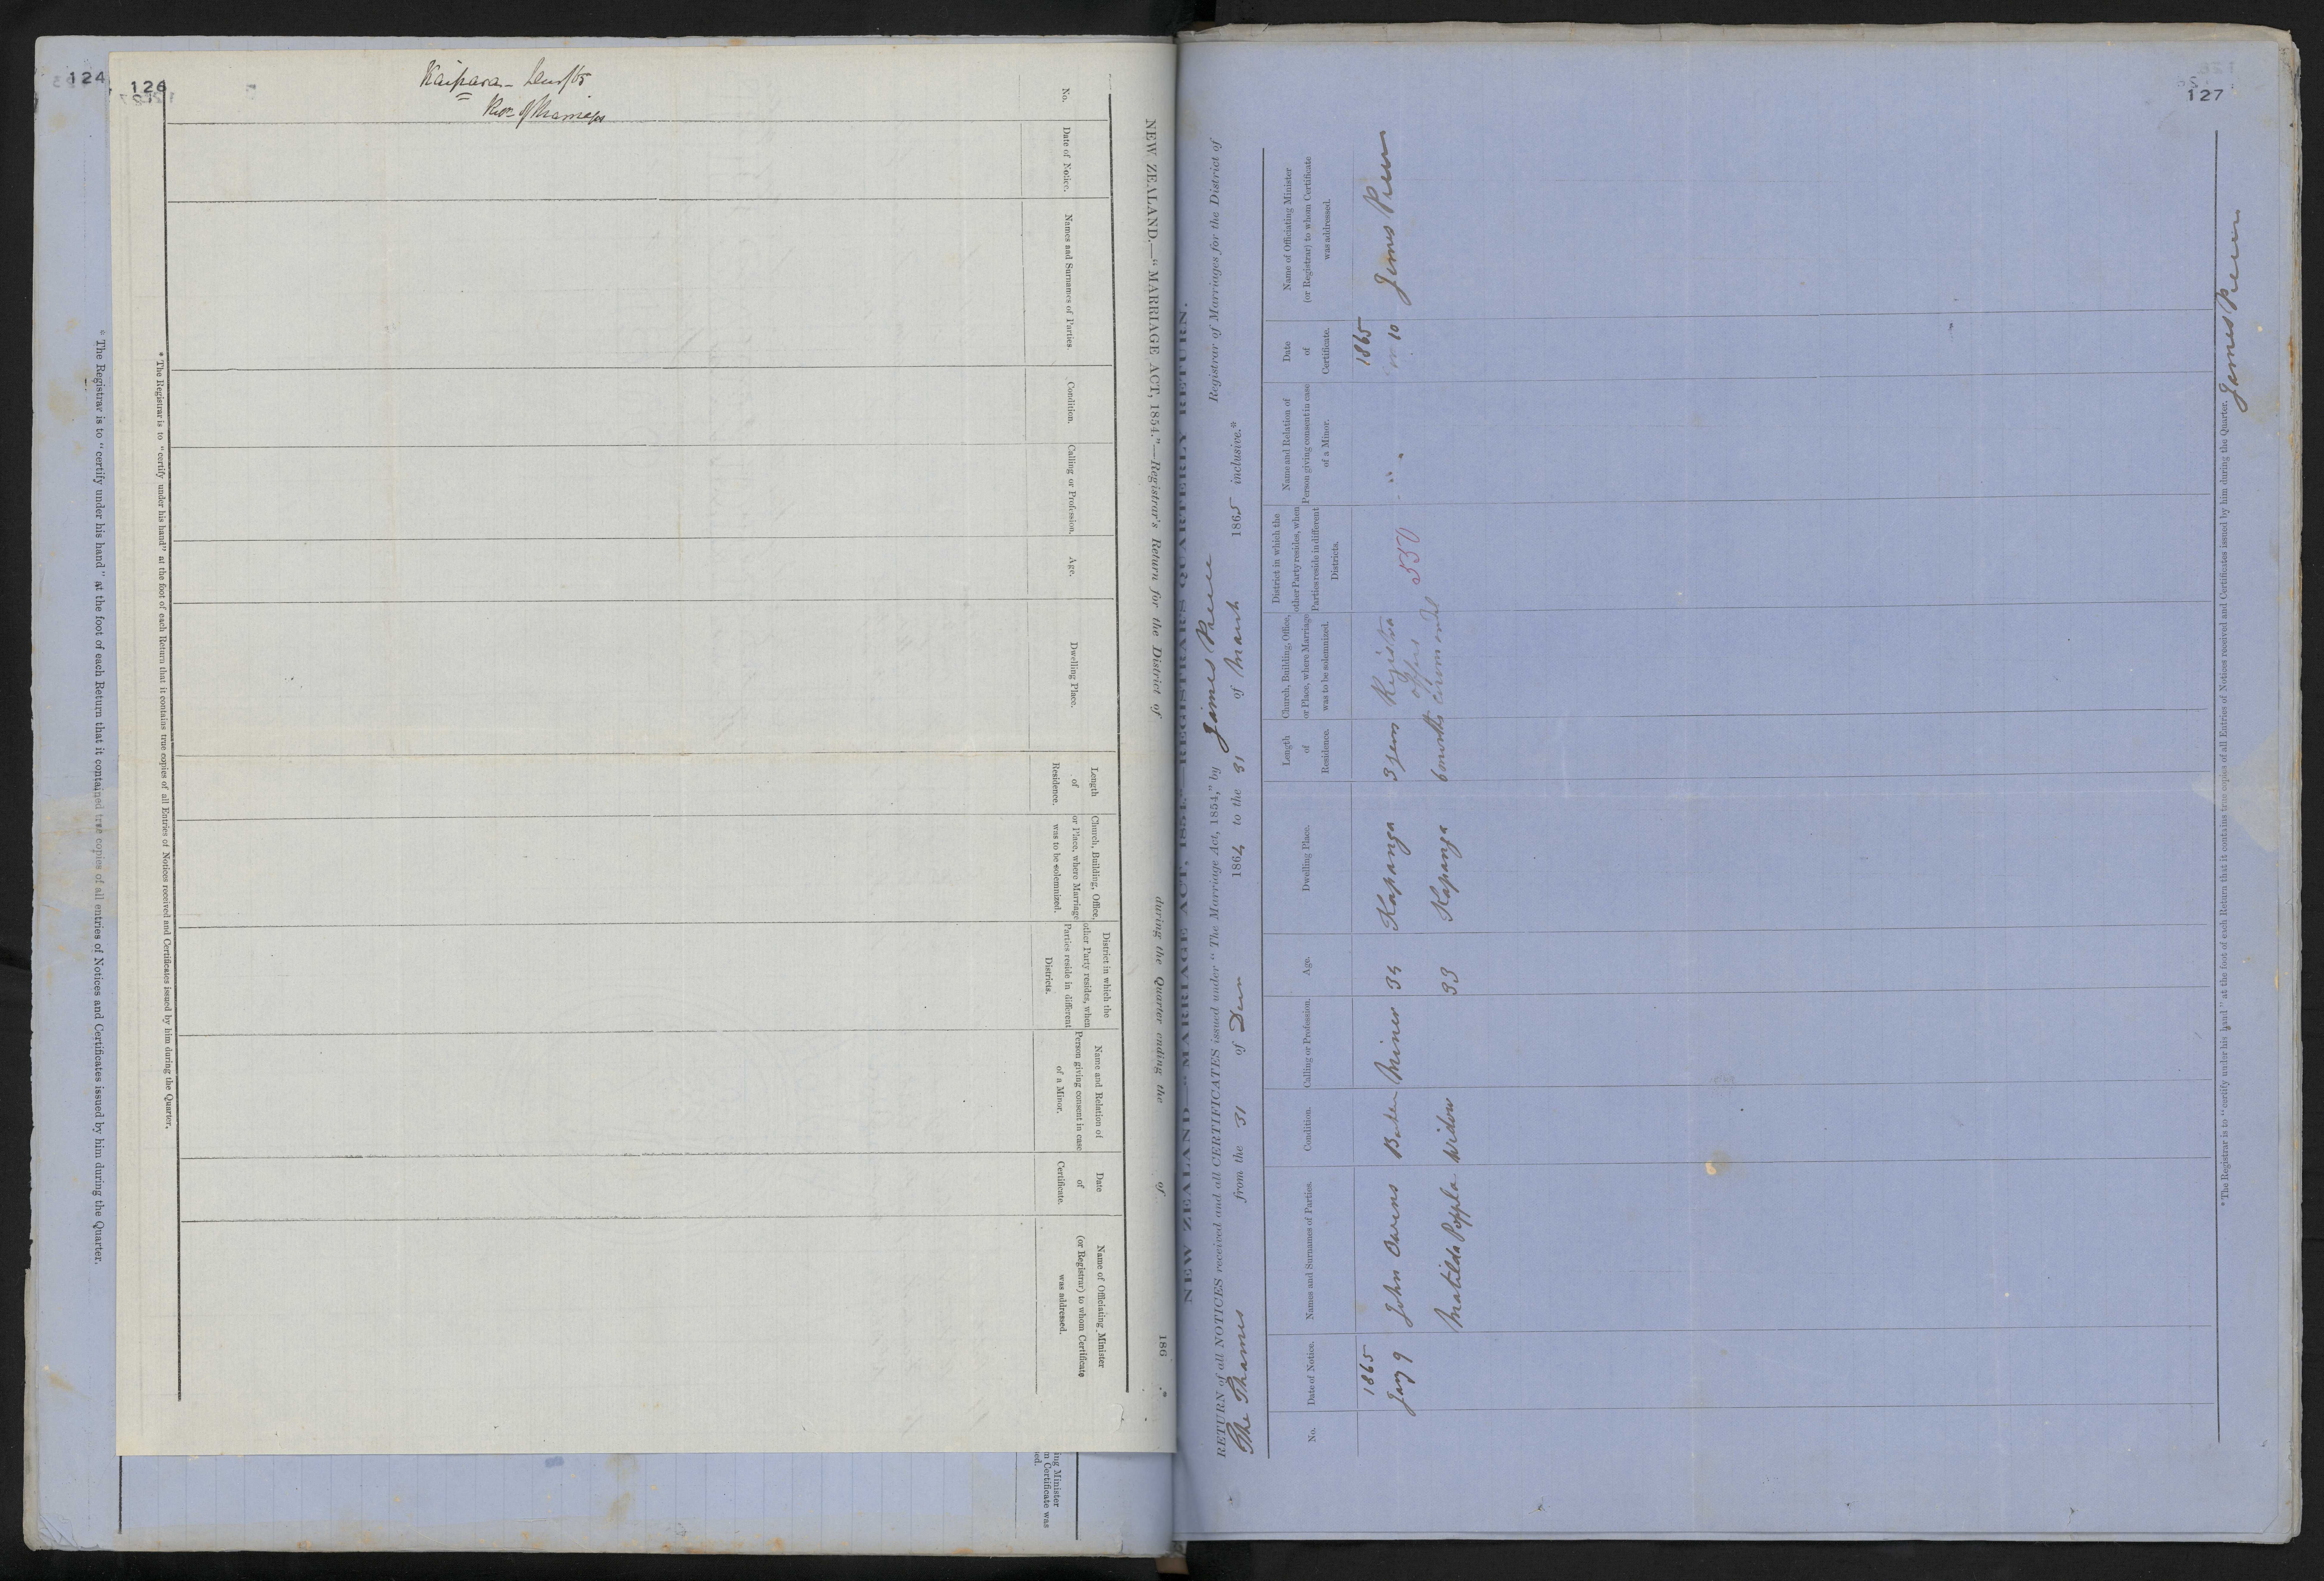 124
126
Kaipara
NEW ZEALAND.—“MARRIAGE ACT, 1854.”—Registrar's Return for the District of during the Quarter ending the of 186 .*
No.
Date of Notice.
Names and Surnames of Parties.
Condition.
Calling or Profession.
Age.
Dwelling Place.
Length
of
Residence.
Church, Building, Office,
or Place, where Marriage
was to be solemnized.
District in which the
other Party resides, when
Parties reside in different
Districts.
Name and Relation of
Person giving consent in case
of a Minor.
Date
of
Certificate.
Name of Officiating Minister
(or Registrar) to whom Certificate
was addressed.
* The Registrar is to “certify under his hand” at the foot of each Return that it contains true copies of all Entries of Notices received and Certificates issued by him during the Quarter.
* The Registrar is to “certify under his hand” at the foot of each Return that it contained true copies of all entries of Notices and Certificates issued by him during the Quarter.
ing Minister
n Certificate was
ed.
127
NEW ZEALAND.—“MARRIAGE ACT, 1854.”—REGISTRAR'S QUARTERLY RETURN.
RETURN of all NOTICES received and all CERTIFICATES issued under “The Marriage Act, 1854,” by James Registrar of Marriages for the District of
The Thames from the 31 of 1864 to the 31 of March 1865 inclusive.*
No.
Date of Notice.
Names and Surnames of Parties.
Condition.
Calling or Profession.
Age.
Dwelling Place.
Length
of
Residence.
Church, Building, Office,
or Place, where Marriage
was to be solemnized.
District in which the
other Party resides, when
Parties reside in different
Districts.
Name and Relation of
Person giving consent in case
of a Minor.
Date
of
Certificate.
Name of Officiating Minister
(or Registrar) to whom Certificate
was addressed.
1865 1865
Jany 9 John Owens Miner 34 Kapanga 3 years 10 James
550
Matilda widow 33 Kapanga 6 months
* The Registrar is to “certify under his hand” at the foot of each Return that it contains true copies of all Entries of Notices received and Certificates issued by him during the Quarter. James